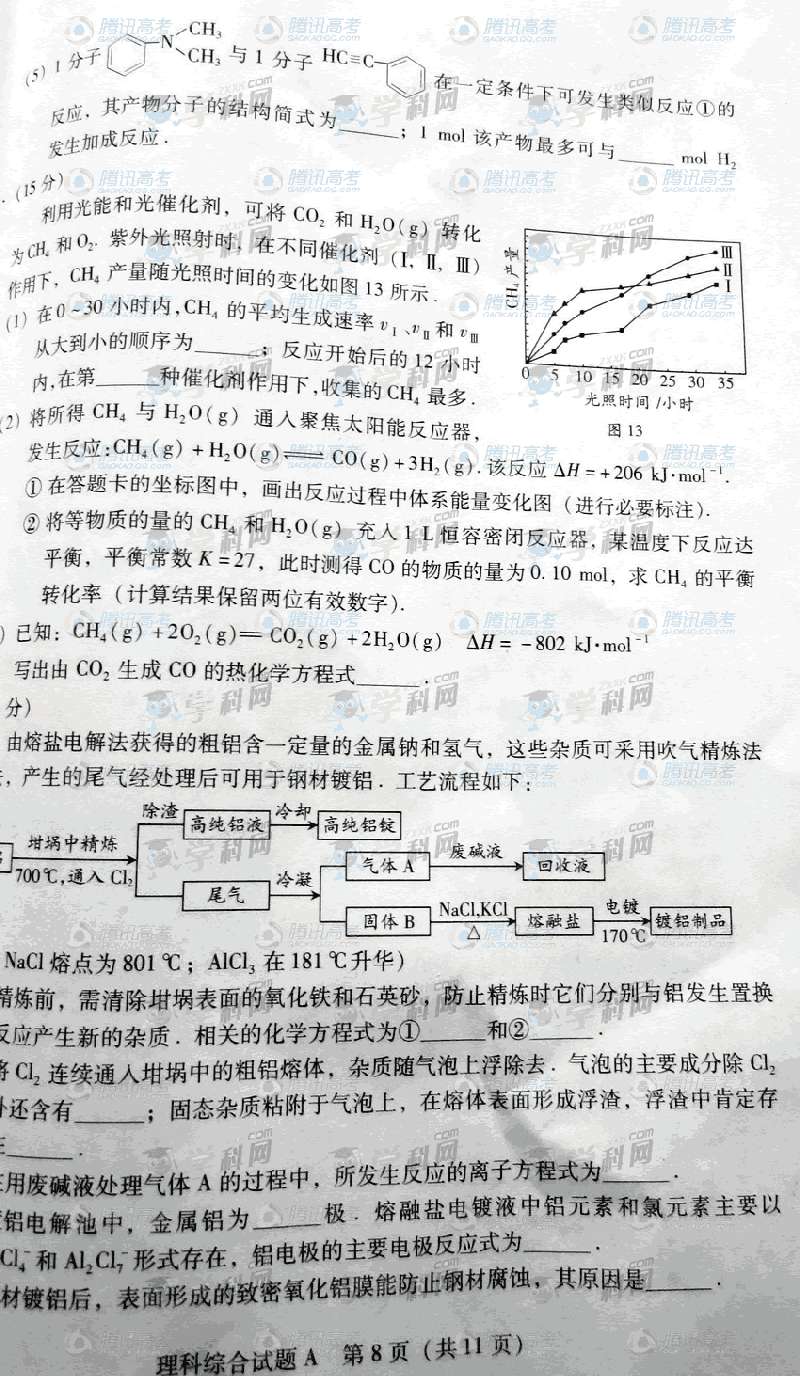 (5) 1 分子 N CH₃ CH₃ 与 1 分子 HC≡C 在一定条件下可发生类似反应①的
反应, 其产物分子的结构简式为______; 1 mol 该产物最多可与______ mol H₂
发生加成反应.
. (15 分)
利用光能和光催化剂, 可将 CO₂ 和 H₂O(g) 转化
为CH₄ 和 O₂. 紫外光照射时, 在不同催化剂 (Ⅰ, Ⅱ, Ⅲ)
作用下, CH₄ 产量随光照时间的变化如图 13 所示.
(1) 在 0~30 小时内, CH₄ 的平均生成速率 v Ⅰ、v Ⅱ 和 v Ⅲ
从大到小的顺序为______; 反应开始后的 12 小时
内,在第______种催化剂作用下,收集的 CH₄ 最多.
CH₄ 产量
Ⅲ
Ⅱ
Ⅰ
0 5 10 15 20 25 30 35
光照时间 /小时
图 13
(2) 将所得 CH₄ 与 H₂O(g) 通入聚焦太阳能反应器,
发生反应:CH₄(g) + H₂O(g) ⇌ CO(g)+3H₂(g). 该反应 ΔH = +206 kJ·mol⁻¹.
① 在答题卡的坐标图中, 画出反应过程中体系能量变化图 (进行必要标注).
② 将等物质的量的 CH₄ 和 H₂O(g) 充入 1 L 恒容密闭反应器, 某温度下反应达
平衡, 平衡常数 K = 27, 此时测得 CO 的物质的量为 0. 10 mol, 求 CH₄ 的平衡
转化率 (计算结果保留两位有效数字).
) 已知: CH₄(g) + 2O₂(g) = CO₂(g) + 2H₂O(g) ΔH = -802 kJ·mol⁻¹
写出由 CO₂ 生成 CO 的热化学方程式______.
分)
由熔盐电解法获得的粗铝含一定量的金属钠和氢气, 这些杂质可采用吹气精炼法
, 产生的尾气经处理后可用于钢材镀铝. 工艺流程如下:
坩埚中精炼
700℃,通入 Cl₂
除渣 高纯铝液 冷却 高纯铝锭
尾气 冷凝 气体 A 废碱液 回收液
固体 B NaCl,KCl △ 熔融盐 电镀 170℃ 镀铝制品
NaCl 熔点为 801℃; AlCl₃ 在 181℃升华)
精炼前, 需清除坩埚表面的氧化铁和石英砂, 防止精炼时它们分别与铝发生置换
反应产生新的杂质. 相关的化学方程式为①______和②______.
将 Cl₂ 连续通入坩埚中的粗铝熔体, 杂质随气泡上浮除去. 气泡的主要成分除 Cl₂
外还含有______; 固态杂质粘附于气泡上, 在熔体表面形成浮渣, 浮渣中肯定存
在______.
在用废碱液处理气体 A 的过程中, 所发生反应的离子方程式为______.
镀铝电解池中, 金属铝为______极. 熔融盐电镀液中铝元素和氯元素主要以
Cl₄⁻ 和 Al₂Cl₇⁻ 形式存在, 铝电极的主要电极反应式为______.
材镀铝后, 表面形成的致密氧化铝膜能防止钢材腐蚀, 其原因是______.
理科综合试题 A 第 8 页 (共 11 页)